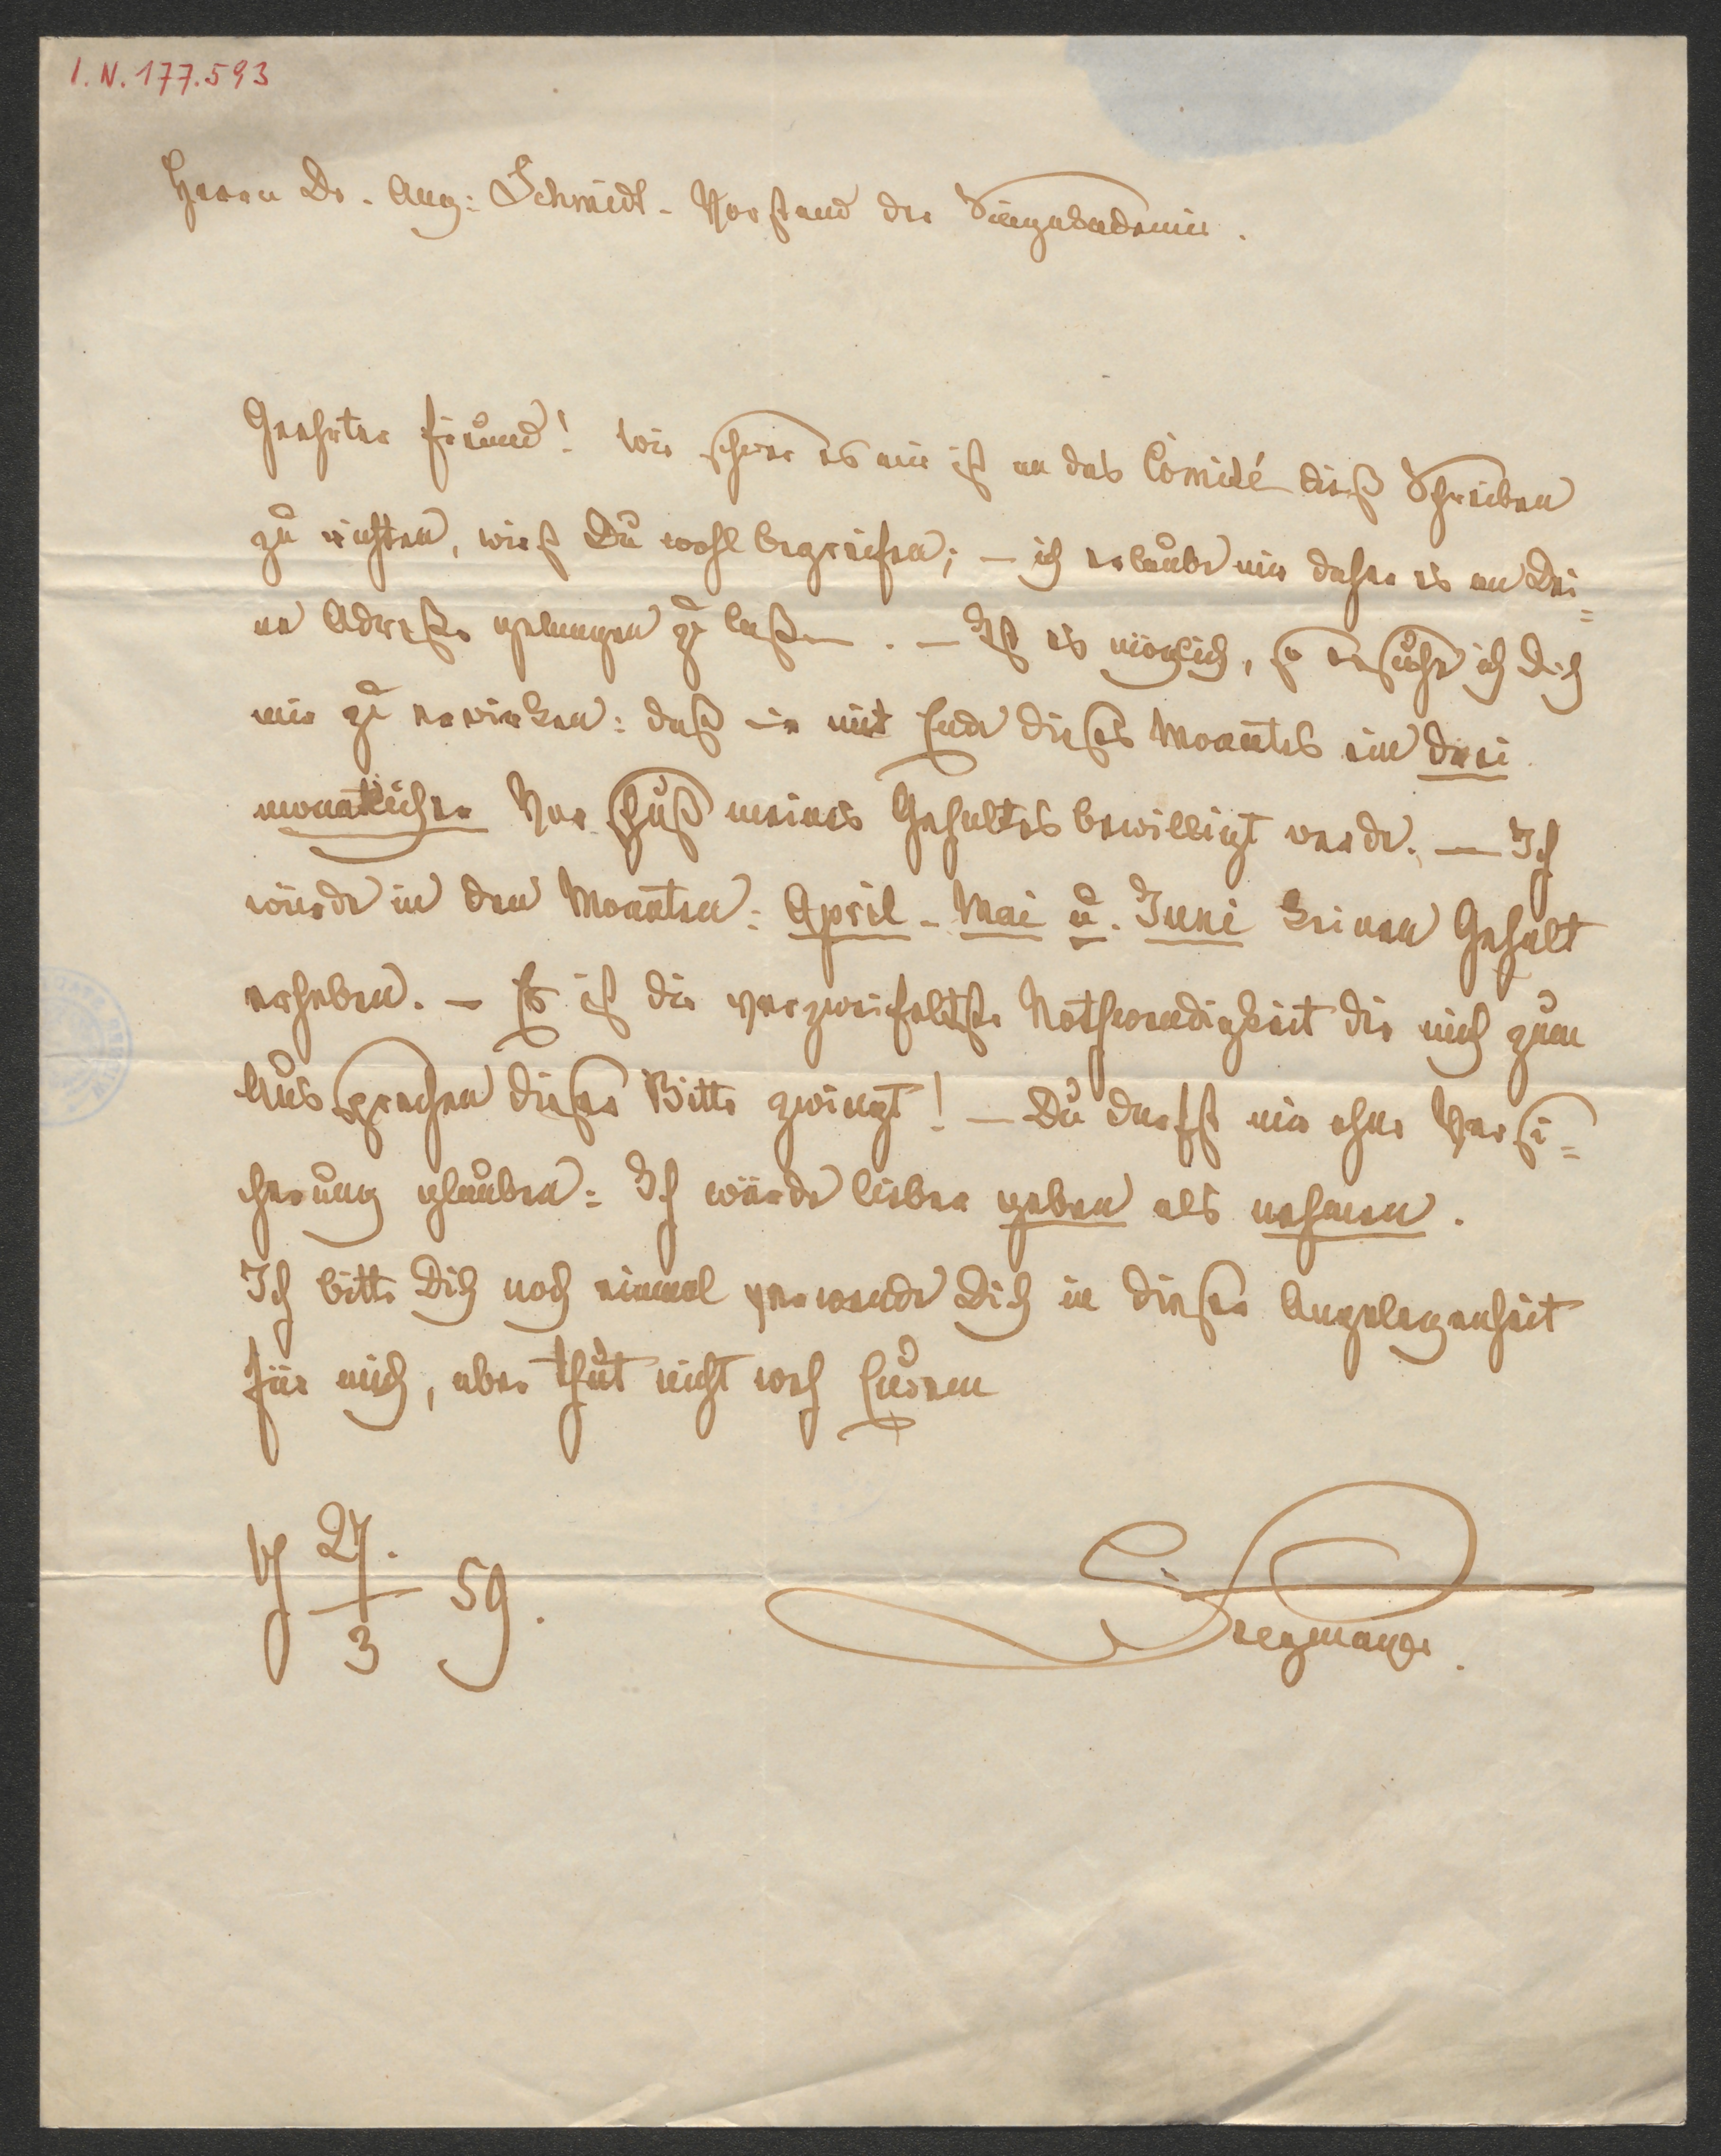 I.N. 177.593
Herrn Dr. Aug: Schmidt - Vorstand der Singakademie.
Geehrter Freund! Wie schwer es mir ist an das Comité dieß Schreiben
zu richten, wirst Du wohl begreifen; – ich erlaube mir daher es an Dei=
ne Adresse gelangen zu lassen. – Ist es möglich, so ersuche ich Dich
mir zu erwirken: daß mir mit Ende dieses Monates ein drei
monatlicher Vorschuß meines Gehaltes bewilligt werde. – Ich
würde in den Monaten: April - Mai u. Juni keinen Gehalt
erheben. – Es ist die verzweifeltste Nothwendigkeit die mich zum
Aussprechen dieser Bitte zwingt! – Du darfst mir ohne Versi=
cherung glauben: Ich würde lieber geben als nehmen.
Ich bitte Dich noch einmal verwende Dich in dieser Angelegenheit
für mich, aber thut nicht weh Eurem
27. 59.
3
Stegmayer.